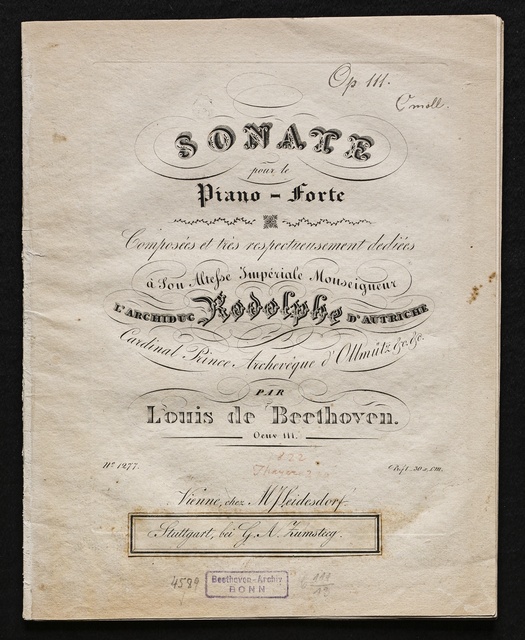 Op 111.
C moll.
SONATE
pour le
Piano - Forte
Composées et très respectueusement dediées
à Son Altesse Impériale Monseigneur
L'ARCHIDUC Rodolphe D'AUTRICHE
Cardinal Prince Archevêque d'Ollmütz &c. &c.
PAR
Louis de Beethoven.
Oeuv 111.
1822
Nº 1277.
Vienne, chez M J Leidesdorf.
Stuttgart, bei G. A. Zumsteeg.
4589
Beethoven-Archiv
BONN
C 111